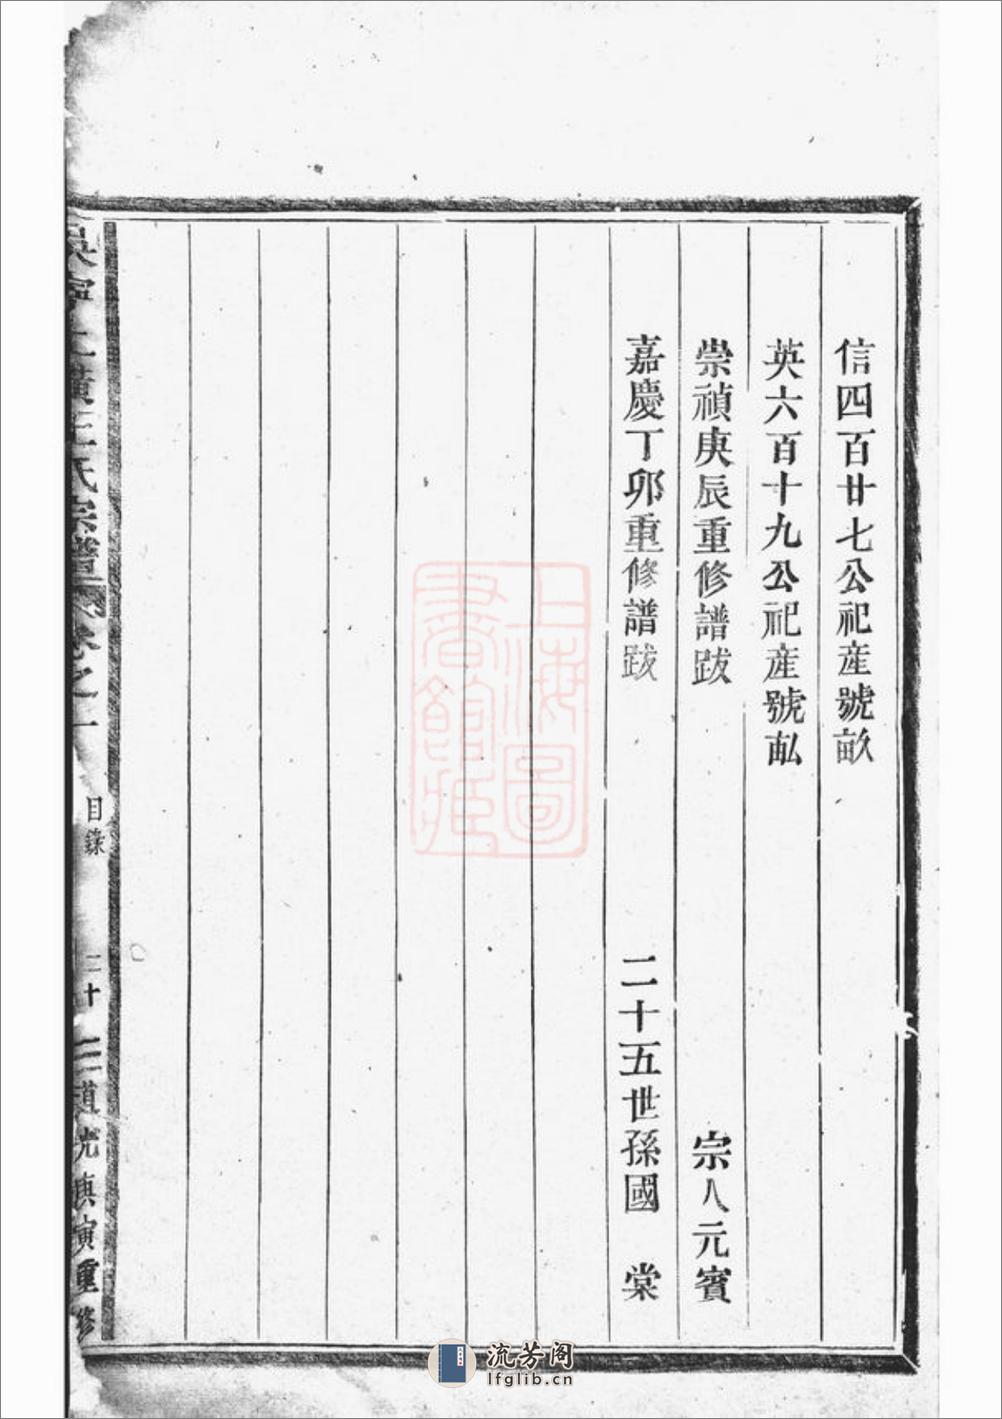 信四百廿七公祀産號畝
英六百十九公祀産號畝
崇禎庚辰重修譜跋 宗人元賓
嘉慶丁卯重修譜跋 二十五世孫國棠
王氏宗譜 卷之一 目錄 二十 道光庚寅重修
上海圖書館藏
流芳阁
lfglib.cn